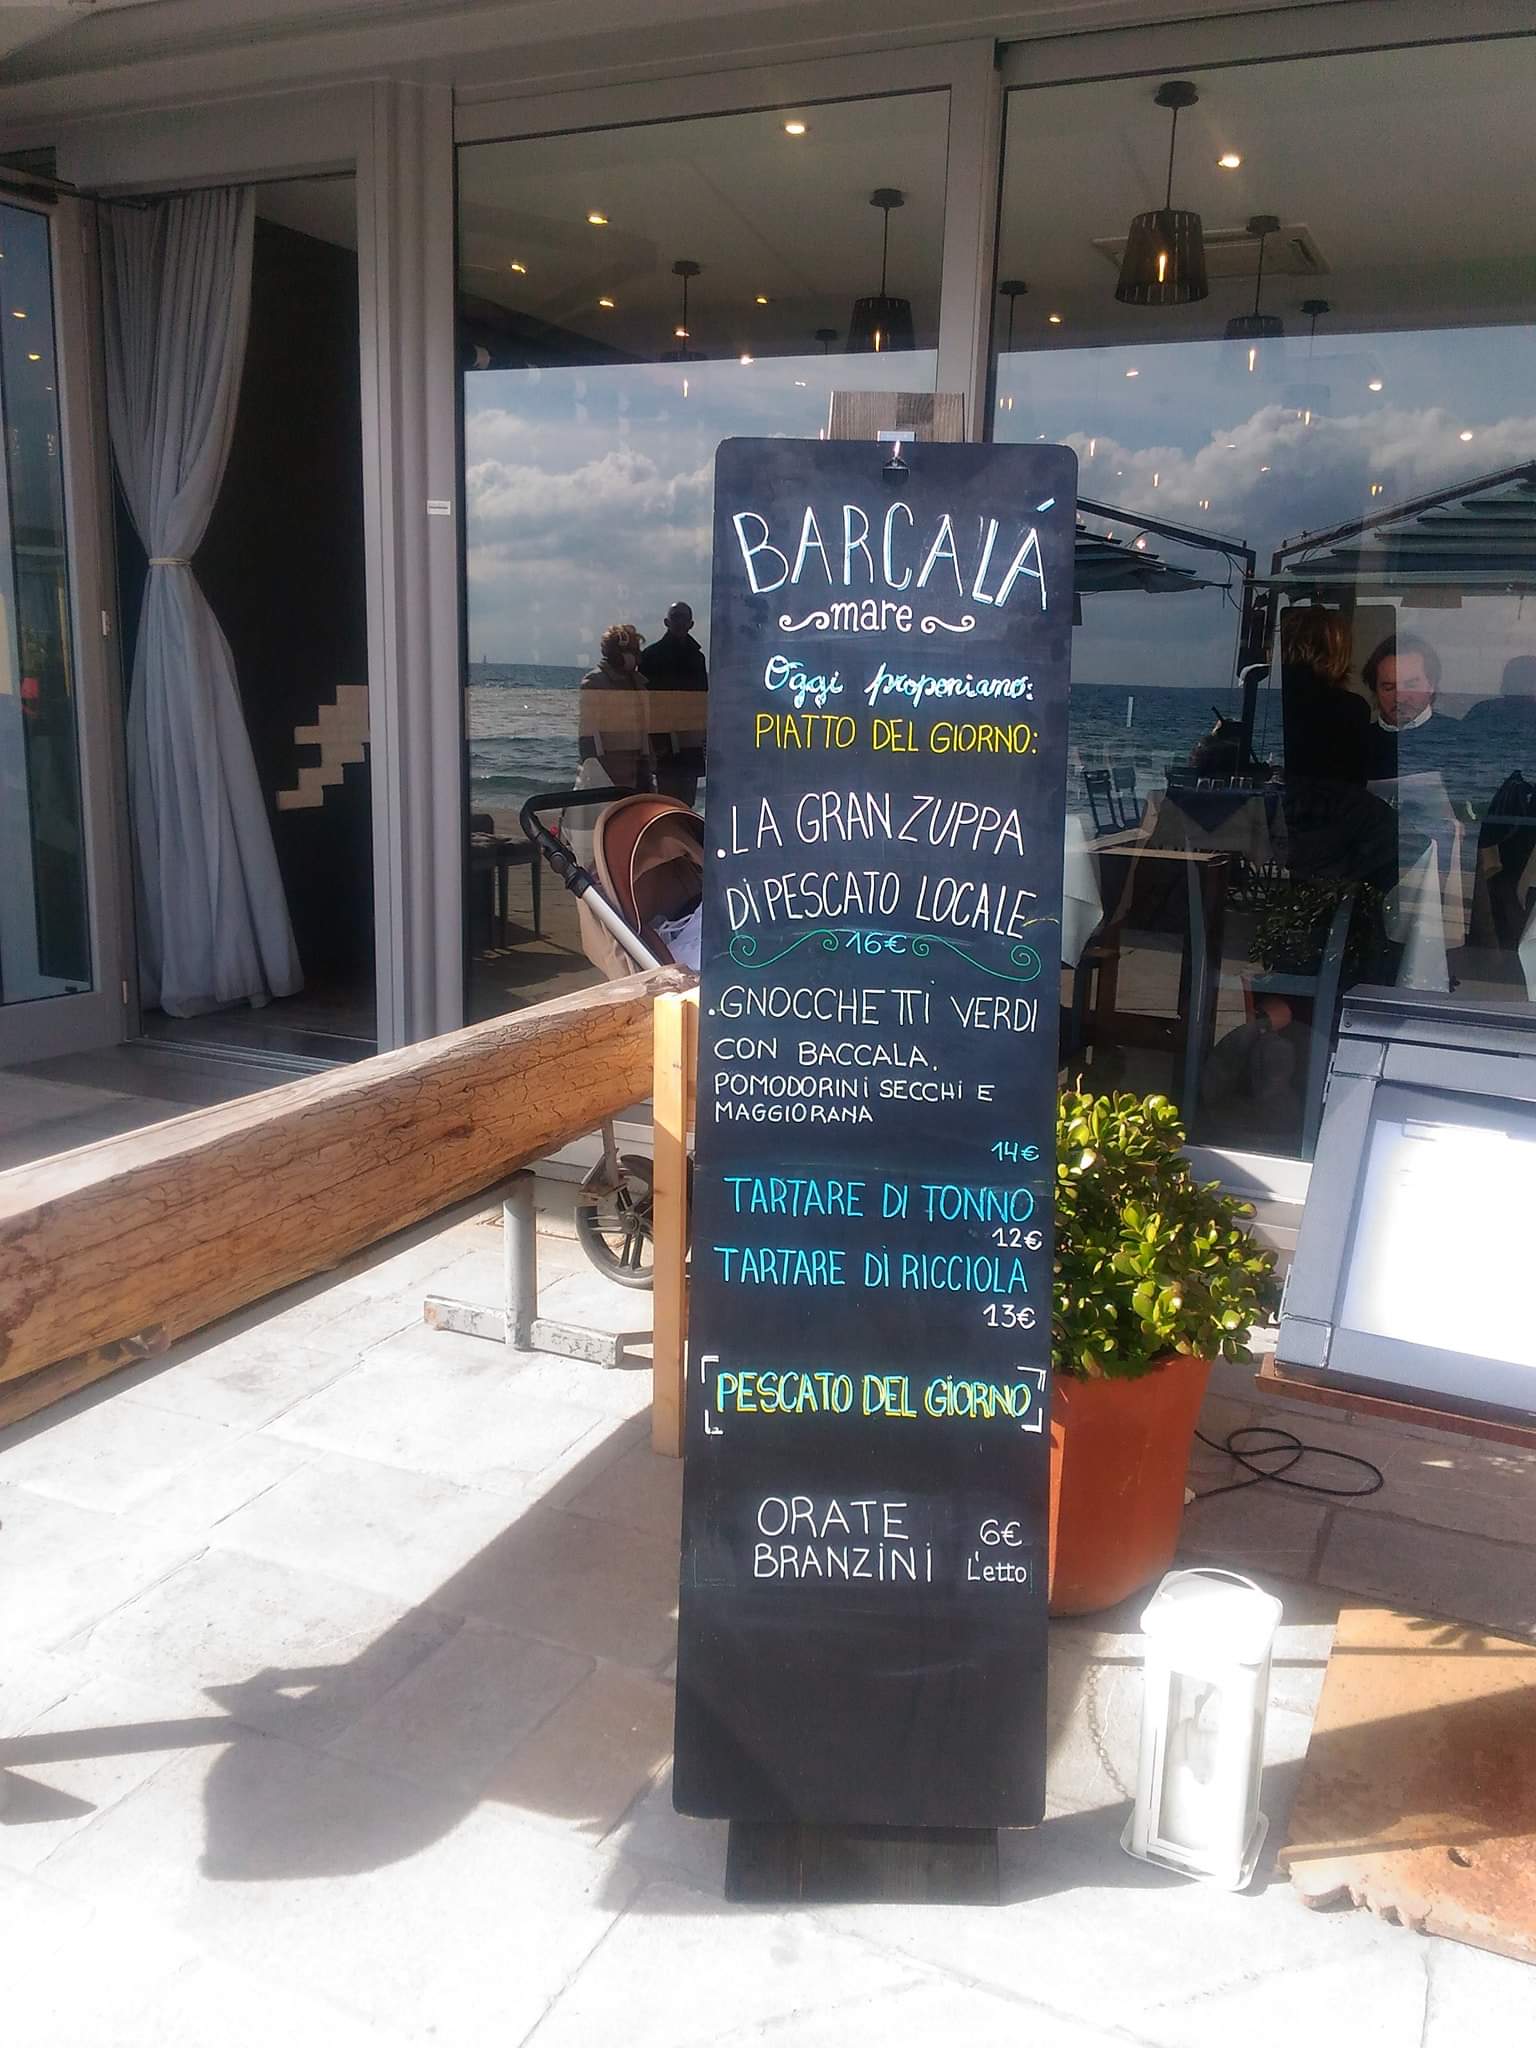 BARCALÁ
mare
Oggi proponiamo:
PIATTO DEL GIORNO:
.LA GRAN ZUPPA
DI PESCATO LOCALE
16€
.GNOCCHETTI VERDI
CON BACCALA.
POMODORINI SECCHI E
MAGGIORANA
14€
TARTARE DI TONNO
12€
TARTARE DI RICCIOLA
13€
PESCATO DEL GIORNO
ORATE 6€
BRANZINI L'etto